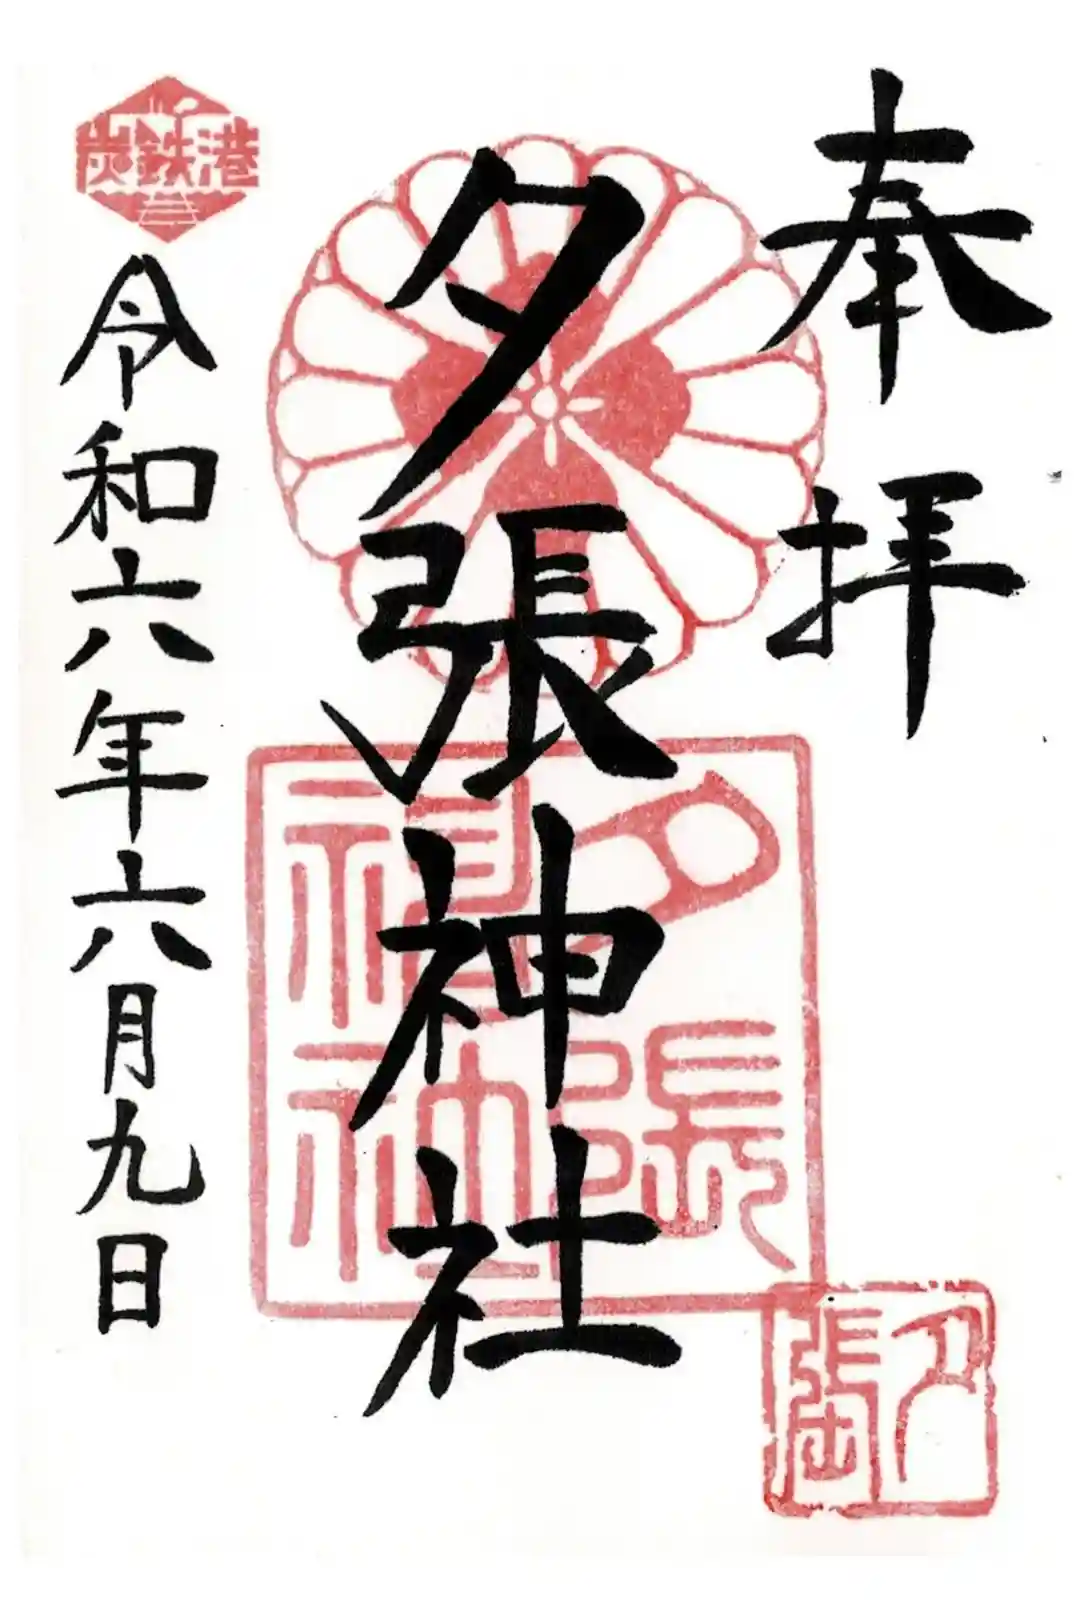 奉拝
夕張神社
令和六年六月九日
炭鉄港
夕張
神社